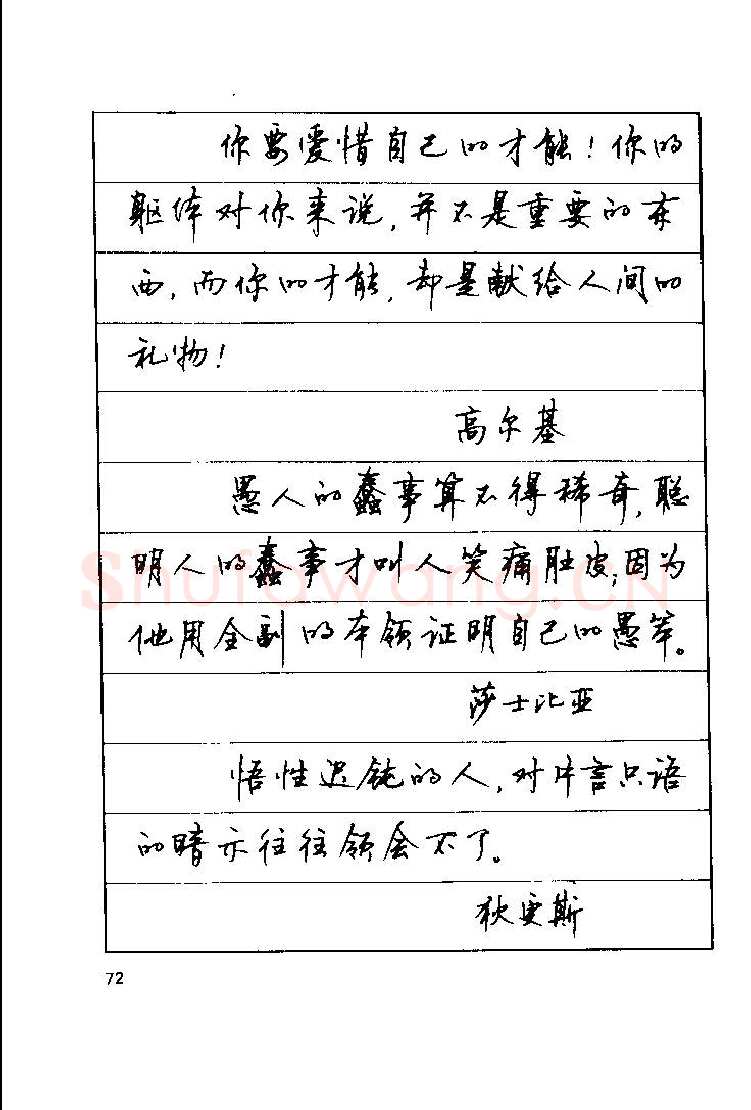 你要爱惜自己的才能！你的
躯体对你来说，并不是重要的东
西，而你的才能，却是献给人间的
礼物！
高尔基
愚人的蠢事算不得稀奇，聪
明人的蠢事才叫人笑痛肚皮；因为
他用全副的本领证明自己的愚笨。
莎士比亚
悟性迟钝的人，对片言只语
的暗示往往领会不了。
狄更斯
72
Shufawang.CN